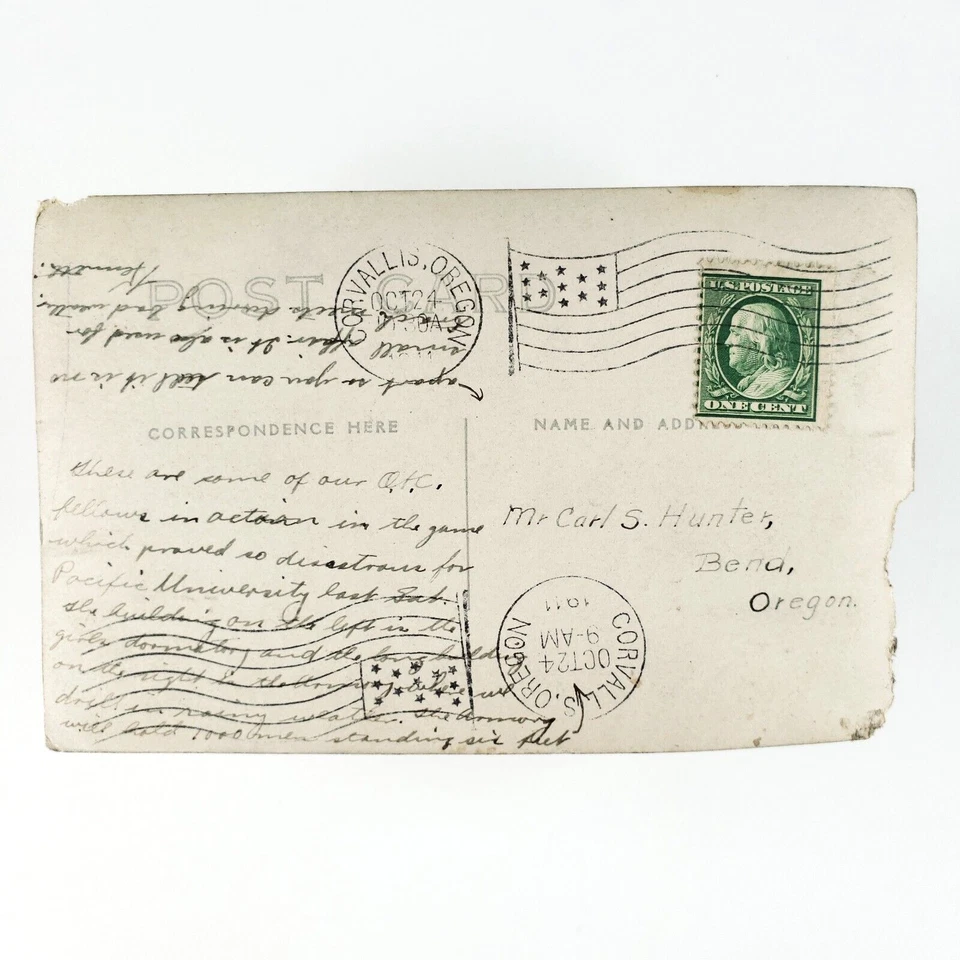 POST CARD
CORVALLIS, OREGON
OCT 24
U.S. POSTAGE
ONE CENT
CORRESPONDENCE HERE
NAME AND ADDR
These are some of our O.A.C.
fellows in action in the game
which proved so disastrous for
Pacific University last Sat.
The building on the left is the
girls dormitory and the long building
on the right is the Armory where we
drill in rainy weather. The Armory
will hold 1000 men standing six feet
apart so you can tell it is no
small affair. It is also used for
meets during bad weather.
Kenneth.
Mr Carl S. Hunter,
Bend,
Oregon.
CORVALLIS, OREGON
OCT 24
9-AM
1911